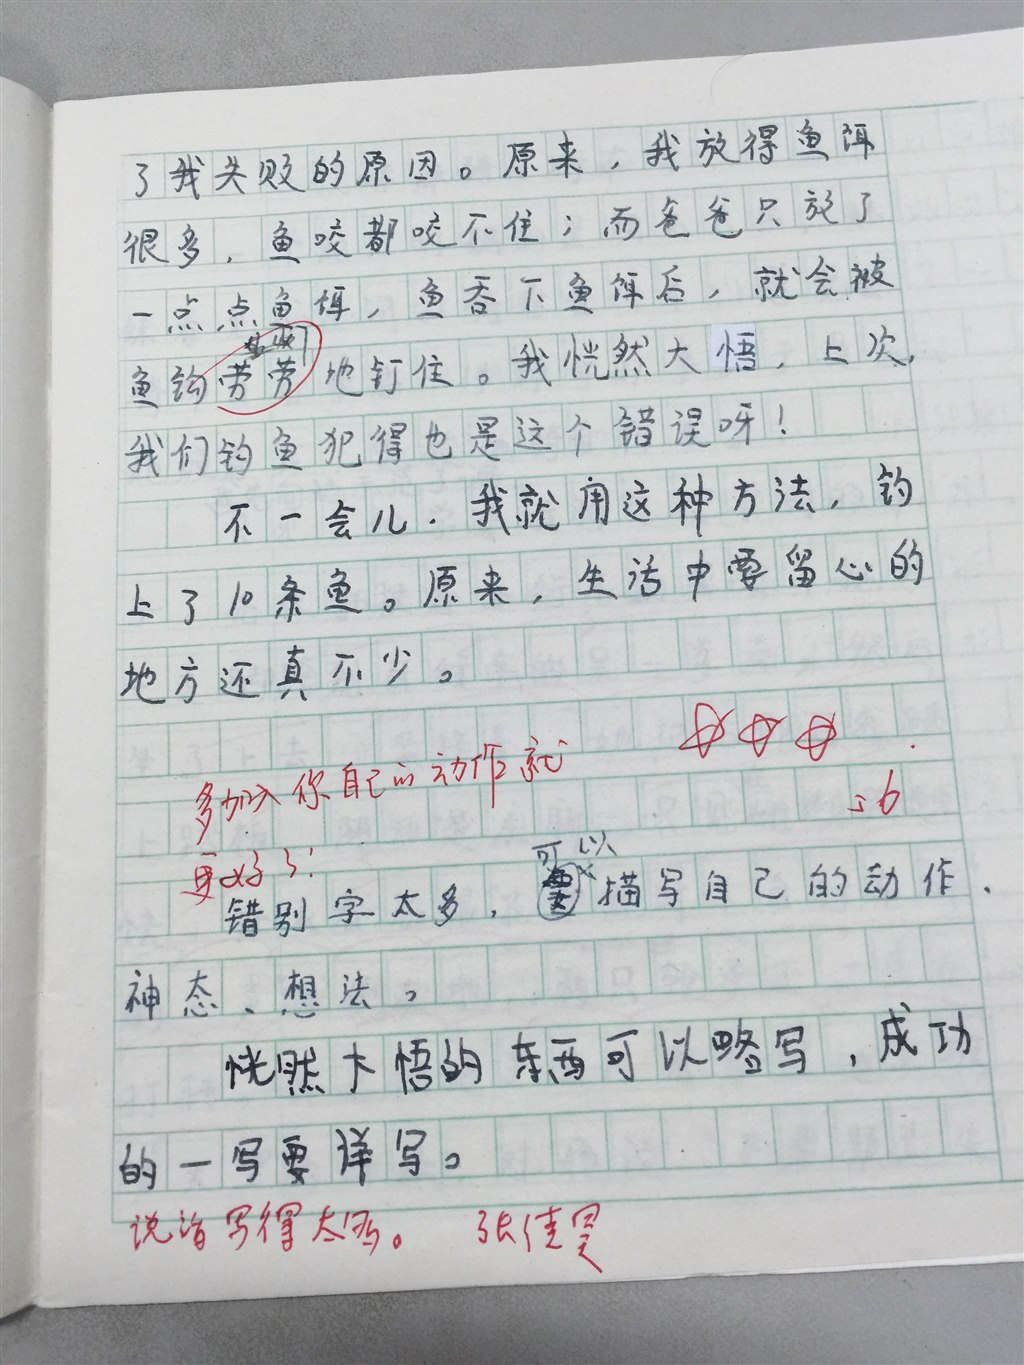 了我失败的原因。原来，我放得鱼饵
很多，鱼咬都咬不住；而爸爸只放了
一点点鱼饵，鱼吞下鱼饵后，就会被
鱼钩劳劳地钉住。我恍然大悟，上次，
我们钓鱼犯得也是这个错误呀！
不一会儿．我就用这种方法，钓
上了10条鱼。原来，生活中要留心的
地方还真不少。
多加入你自己的动作就
更好了！
可以
错别字太多，描写自己的动作、
神态、想法。
恍然大悟的东西可以略写，成功
的一写要详写。
说话写得太多。 张佳昱